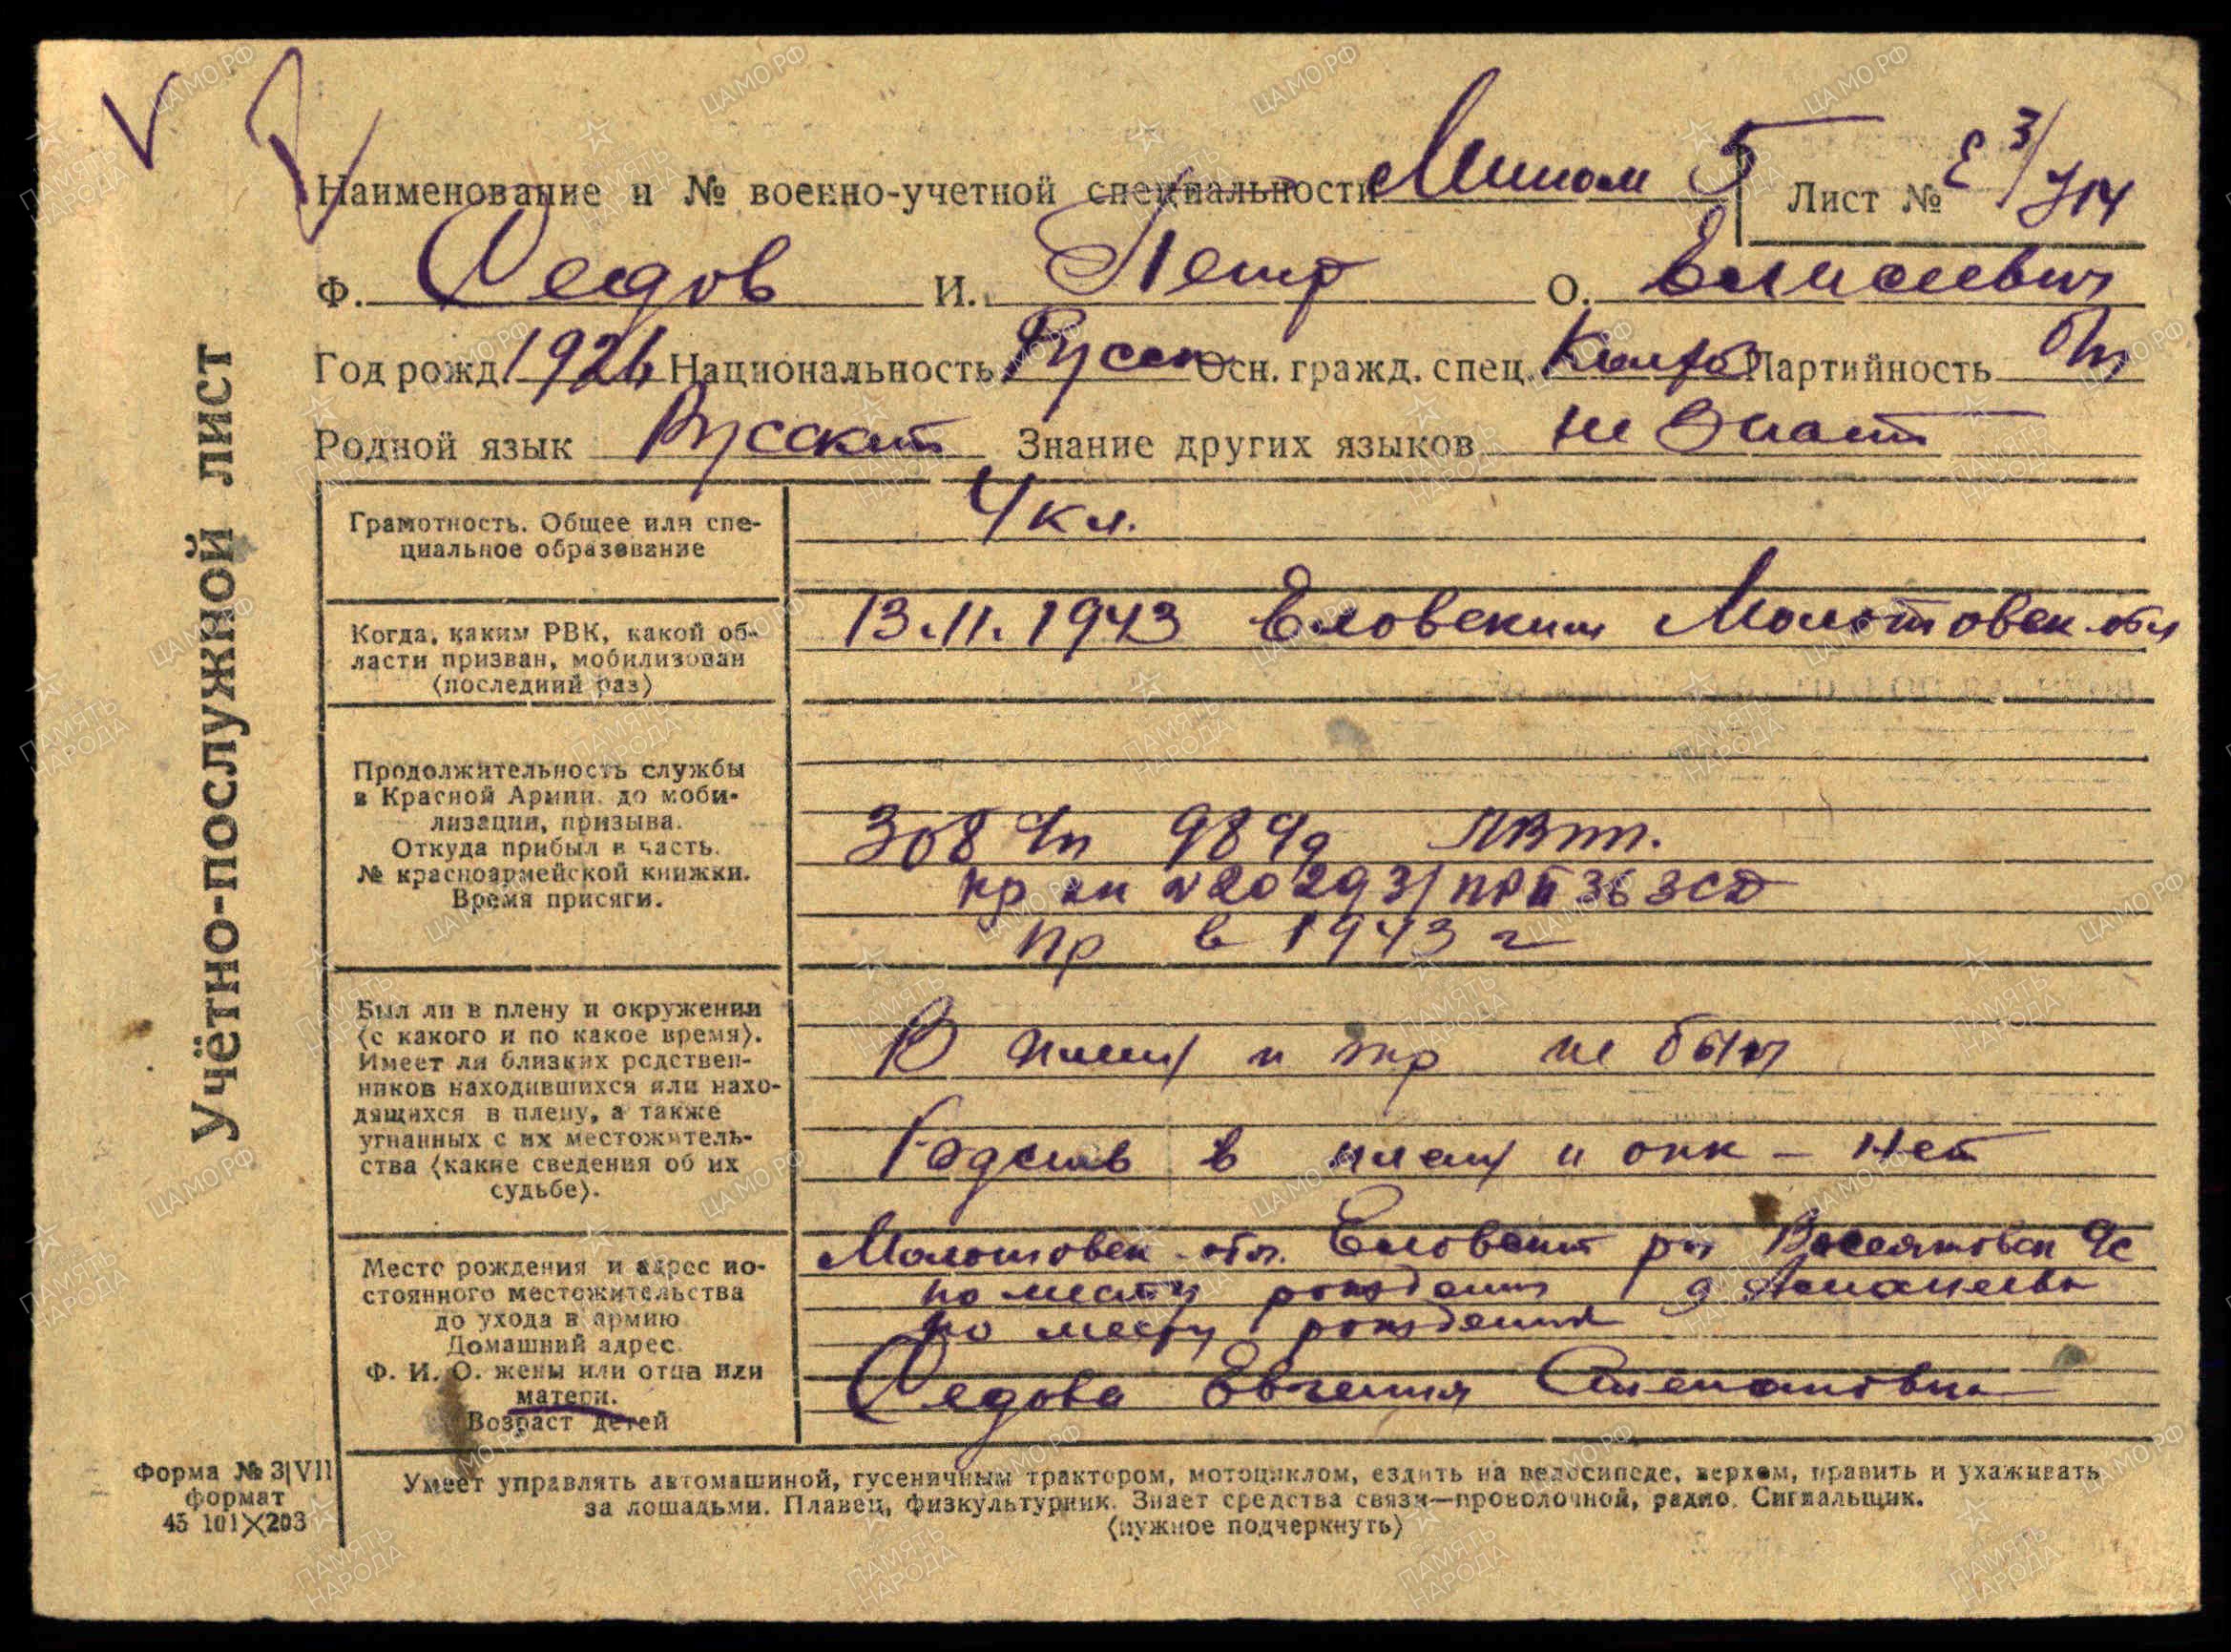 Наименование и № военно-учетной специальности Мином 5 Лист №
Ф. Седов И. Петр О. Елисеевич
Год рожд. 1924 Национальность Русск Осн. гражд. спец. Партийность б/п
Родной язык Русский Знание других языков не знает
Учётно-послужной лист
Грамотность. Общее или специальное образование
4 кл.
Когда, каким РВК, какой области призван, мобилизован
(последний раз)
13.11.1943 Еловским Молотовск обл
Продолжительность службы
в Красной Армии до мобилизации, призыва.
Откуда прибыл в часть.
№ красноармейской книжки.
Время присяги.
308 98
кр кн № 20293 36 ЗСД
пр в 1943 г
Был ли в плену и окружении
(с какого и по какое время).
Имеет ли близких родственников находившихся или находящихся в плену, а также
угнанных с их местожительства (какие сведения об их
судьбе).
В плену и окр не был
Родств в плену и окк – нет
Место рождения и адрес постоянного местожительства
до ухода в армию
Домашний адрес.
Ф. И. О. жены или отца или
матери.
Возраст детей
Молотовск обл. Еловский рн
по месту рождения д
по месту рождения
Седова Евгения Степановна
Форма № 3|VII
формат
45 101×203
Умеет управлять автомашиной, гусеничным трактором, мотоциклом, ездить на велосипеде, верхом, править и ухаживать
за лошадьми. Плавец, физкультурник. Знает средства связи—проволочной, радио. Сигнальщик.
(нужное подчеркнуть)
ЦАМО.РФ
ПАМЯТЬ
НАРОДА